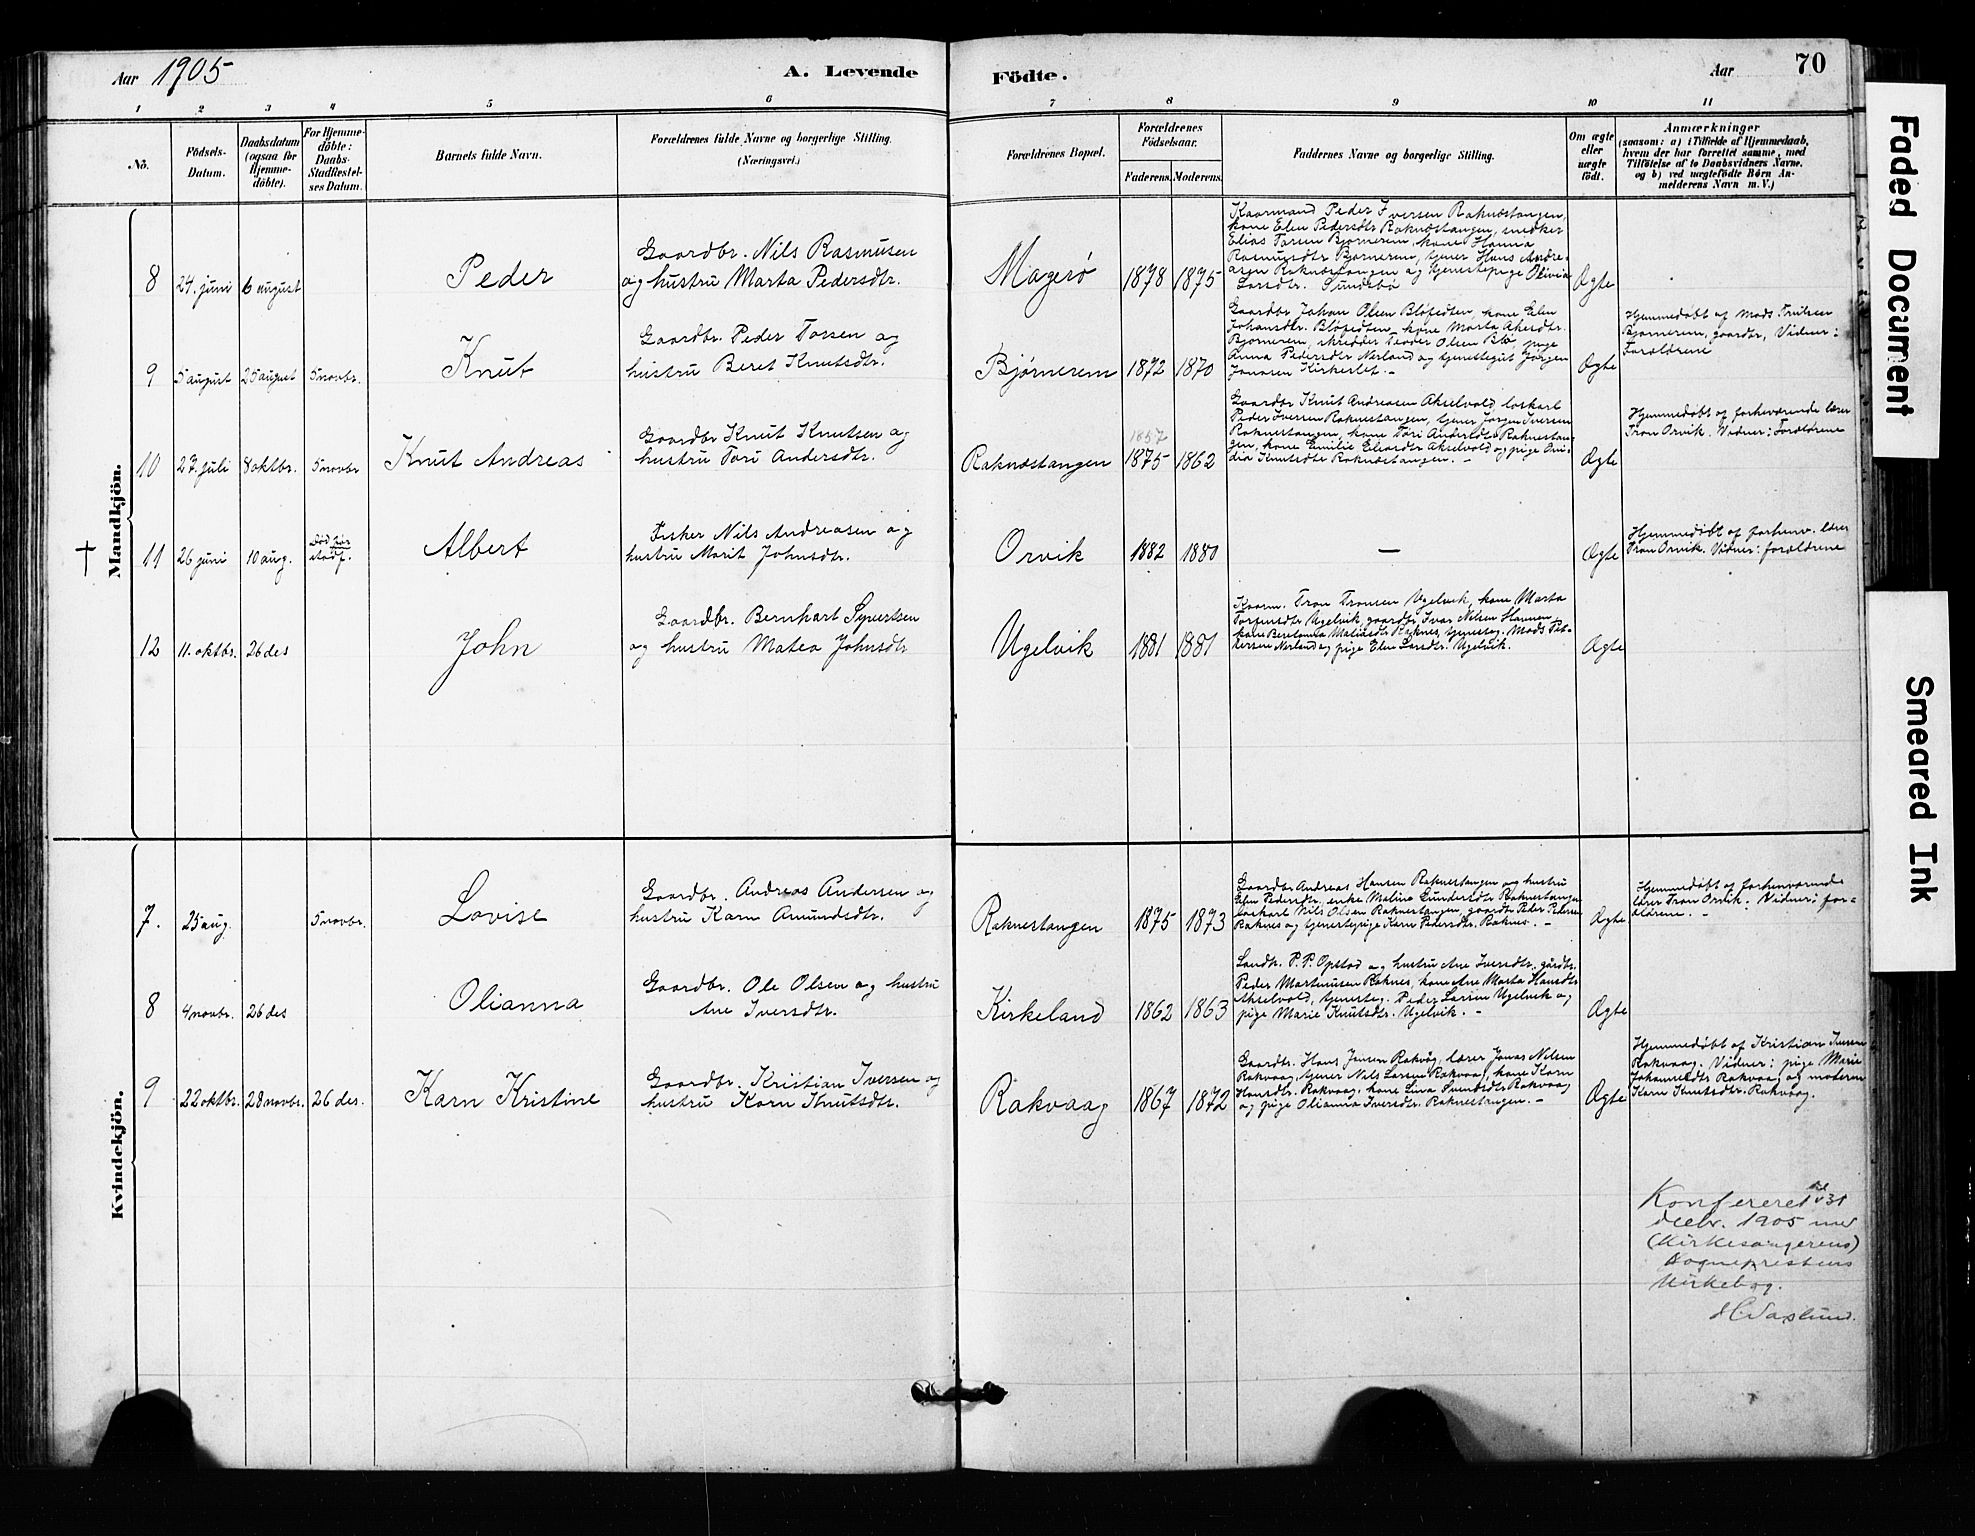 Aar 1905
A. Levende
Födte.
Aar
70
1
2
3
4
5
6
7
8
9
10
11
No.
Födsels-
Datum.
Daabsdatum
(ogsaa for
Hjemme-
döbte).
For Hjemme-
döbte:
Daabs-
Stadfæstel-
ses Datum.
Barnets fulde Navn.
Forældrenes fulde Navne og borgerlige Stilling.
(Næringsvei.)
Forældrenes Bopæl.
Forældrenes
Födselsaar.
Faderens.
Moderens.
Faddernes Navne og borgerlige Stilling.
Om ægte
eller
uægte
födt.
Anmærkninger
(saasom: a) i Tilfælde af Hjemmedaab,
hvem der har forrettet samme, med
Tilföielse af to Daabsvidners Navne,
og b) ved uægtefödte Börn An-
melderens Navn m. V.)
Mandkjön.
8
24. juni
6 august
Peder
Gaardbr. Nils Rasmusen
og hustru Marta Pedersdtr.
Magerö
1878
1875
Kaarmand Peder Iversen Raknestangen,
kone Elen Pedersdtr Raknestangen, snedker
Elias Torsen Bjørnerem, kone Hanna
Rasmusdtr Bjørnerem, tjener Hans Andre-
asen Raknestangen og tjenestepige Olivia
Larsdtr. Sundsbø
Ægte
9
5 august
25 august
5 novbr.
Knut
Gaardbr. Peder Torsen og
hustru Beret Knutsdtr.
Bjørnerem
1872
1870
Gaardbr Johan Olsen kone Elen
Johansdtr. kone Marta
Bjørnerem, skredder Olsen Blø, pige
Anna Pedersdtr Nerland og tjenestegut Jørgen
Jonasen
Ægte
Hjemmedøbt af Mads Trulsen
Bjørnerem, gaardbr, Vidner:
Forældrene
10
27. juli
8 oktbr.
5 novbr
Knut Andreas
Gaardbr Knut Knutsen og
hustru Tori Andersdtr.
Raknestangen
1857
1875
1862
Gaardbr Knut Andreasen Akselvold, løskarl
Peder Iversen Raknestangen, tjener Jørgen Iversen
Raknestangen, kone Tori Andersdtr Raknestan-
gen, kone Emilie Akselvold og pige
Knutsdtr Raknestangen. –
Ægte
Hjemmedøbt af forhenværende lærer
Tron Orvik. Vidner: Forældrene
†
11
26 juni
10 aug.
Død før
stadf.
Albert
Fisker Nils Andreasen og
hustru Marit Johnsdtr.
Orvik
1882
1880
–
Ægte
Hjemmedøbt af forhenv. lærer
Tron Orvik. Vidner: forældrene
12
11. oktbr.
26 des
John
Gaardbr. Bernhart Syvertsen
og hustru Matea Johnsdtr
Ugelvik
1881
1881
Kaarm. Tron Tronsen Ugelvik, kone Marta
Ugelvik, gaardbr Ivar Nilsen
kone Raknes, tjenesteg. Mads
Nerland og pige Elen Larsdtr. Ugelvik.
Ægte
Kvindekjön.
7.
25 aug.
5 novbr.
Lovise
Gaardbr. Andreas Andersen og
hustru Karn Amundsdtr.
Raknestangen
1875
1873
Gaardbr Andreas Hansen Raknestangen og hustru
Elen Pedersdtr. enke Raknestangen
løskarl Nils Olsen Raknestangen, gaardbr Peder Pedersen
Raknes og tjenestepige Karn Pedersdtr. Raknes. –
Ægte
Hjemmedøbt af forhenværende
lærer Tron Orvik. Vidner: for-
ældrene. –
8
4 novbr.
26 des
Olianna
Gaardbr. Ole Olsen og hustru
Ane Iversdtr.
Kirkeland
1862
1863
P. P. Opstad og hustru Ane Iversdtr. gårdbr.
Peder Martinusen Raknes, kone Ane Marta Hansdtr
Akselvold, tjenesteg. Peder Larsen Ugelvik og
pige Marie Knutsdtr. Ugelvik. –
Ægte
9
22 oktbr.
28 novbr.
26 des.
Karn Kristine
Gaardbr. Kristian Iversen og
hustru Karn Knutsdtr.
Rakvaag
1867
1872
Gaardbr. Hans Jensen Rakvåg, lærer Jonas Nilsen
Rakvaag, tjener Nils Larsen Rakvaag, kone Karn
Hansdtr. Rakvaag, kone Lina Rakvaag
og pige Olianna Iversdtr. Raknestangen. –
Ægte
Hjemmedøbt af Kristian Iversen
Rakvaag. Vidner: pige Marie
Johannesdtr Rakvaag og moderen
Karn Knutsdtr. Rakvaag.
Konfereret 31
decbr. 1905 med
(Kirkesangerens)
Sogneprestens
Kirkebog.
Faded Document
Smeared Ink